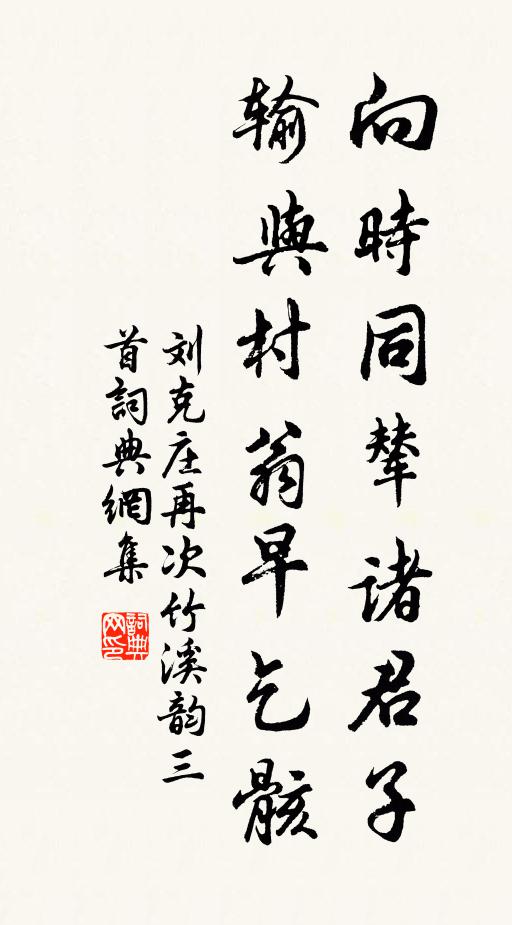 向時同輦諸君子
輸與村翁早乞骸
刘克庄再次竹溪韵三
首詞典網集
詞典网印